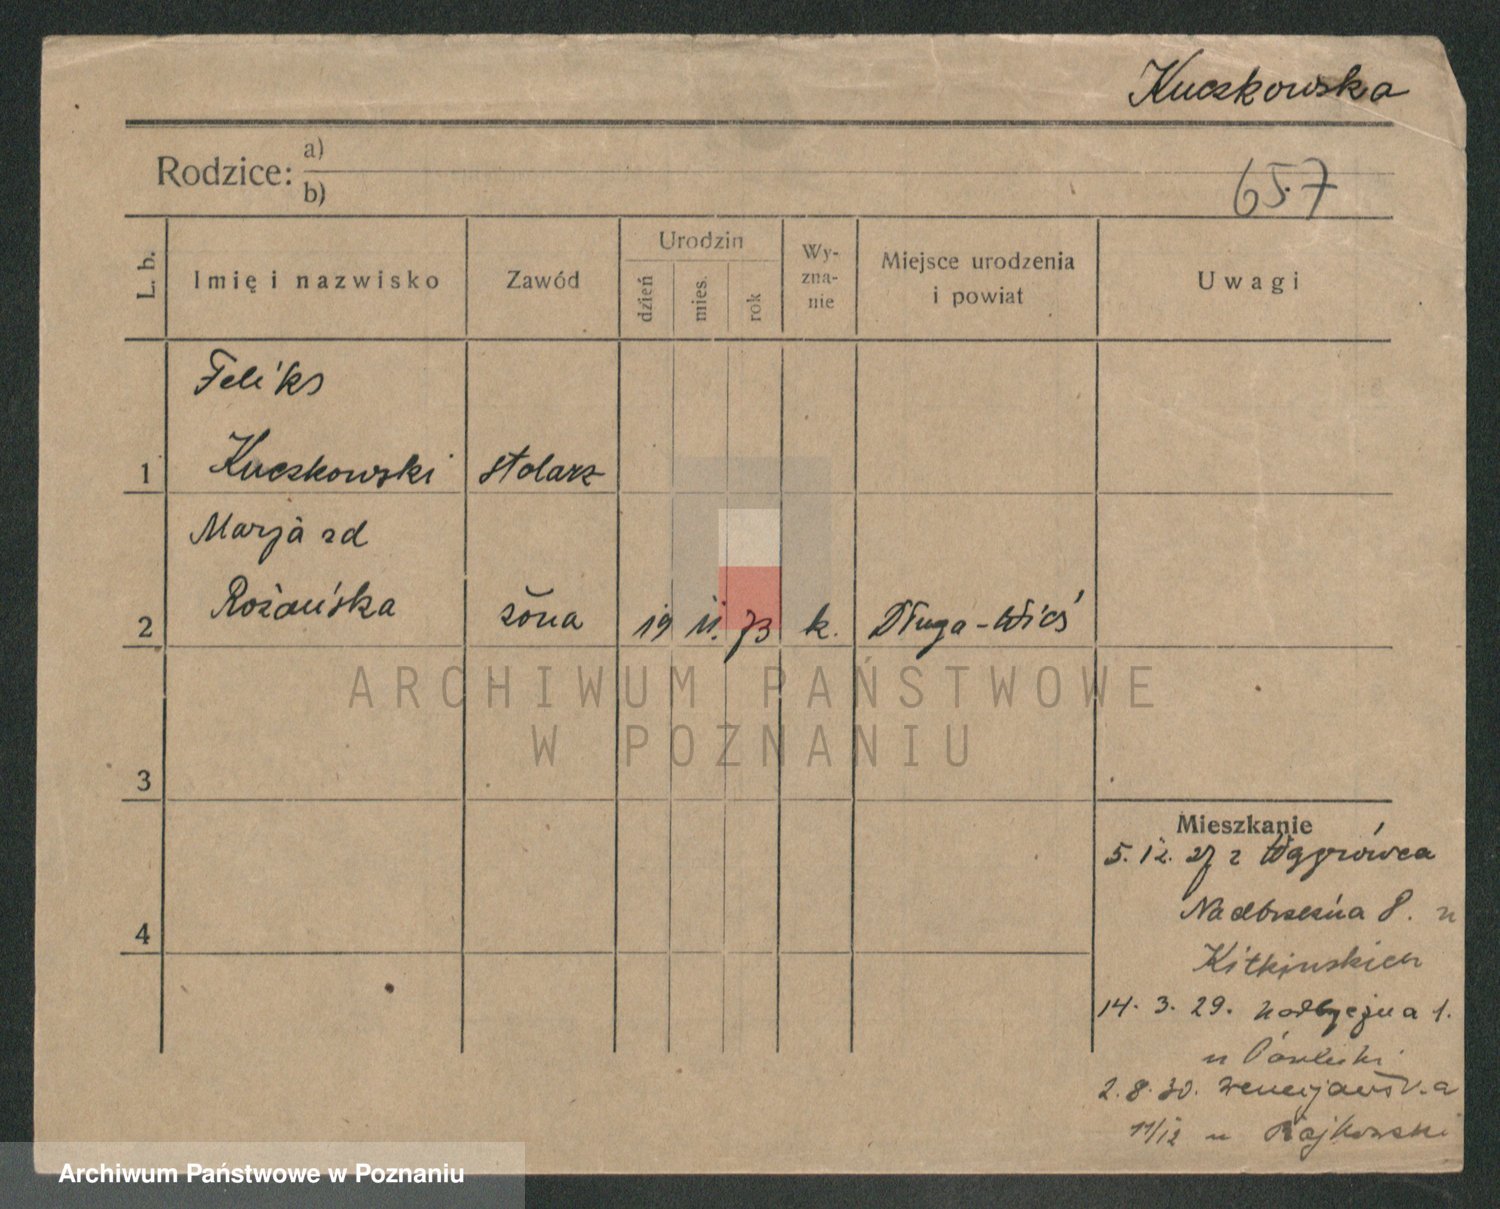 Kuczkowska
Rodzice: a)
b)
657
L. b.
Imię i nazwisko
Zawód
Urodzin
dzień
mies.
rok
Wy-
zna-
nie
Miejsce urodzenia
i powiat
Uwagi
Feliks
1 Kuczkowski stolarz
Marja zd
2 Rożańska żona 19 11. 73 k. Długa-Wieś
ARCHIWUM PAŃSTWOWE
W POZNANIU
3
Mieszkanie
5. 12. 27 z Wągrówca
Nadbrzeżna 8. u
4
14. 3. 29. nadbrzeżna 1.
u
2. 8. 30.
11/12 u Rajkowski
Archiwum Państwowe w Poznaniu